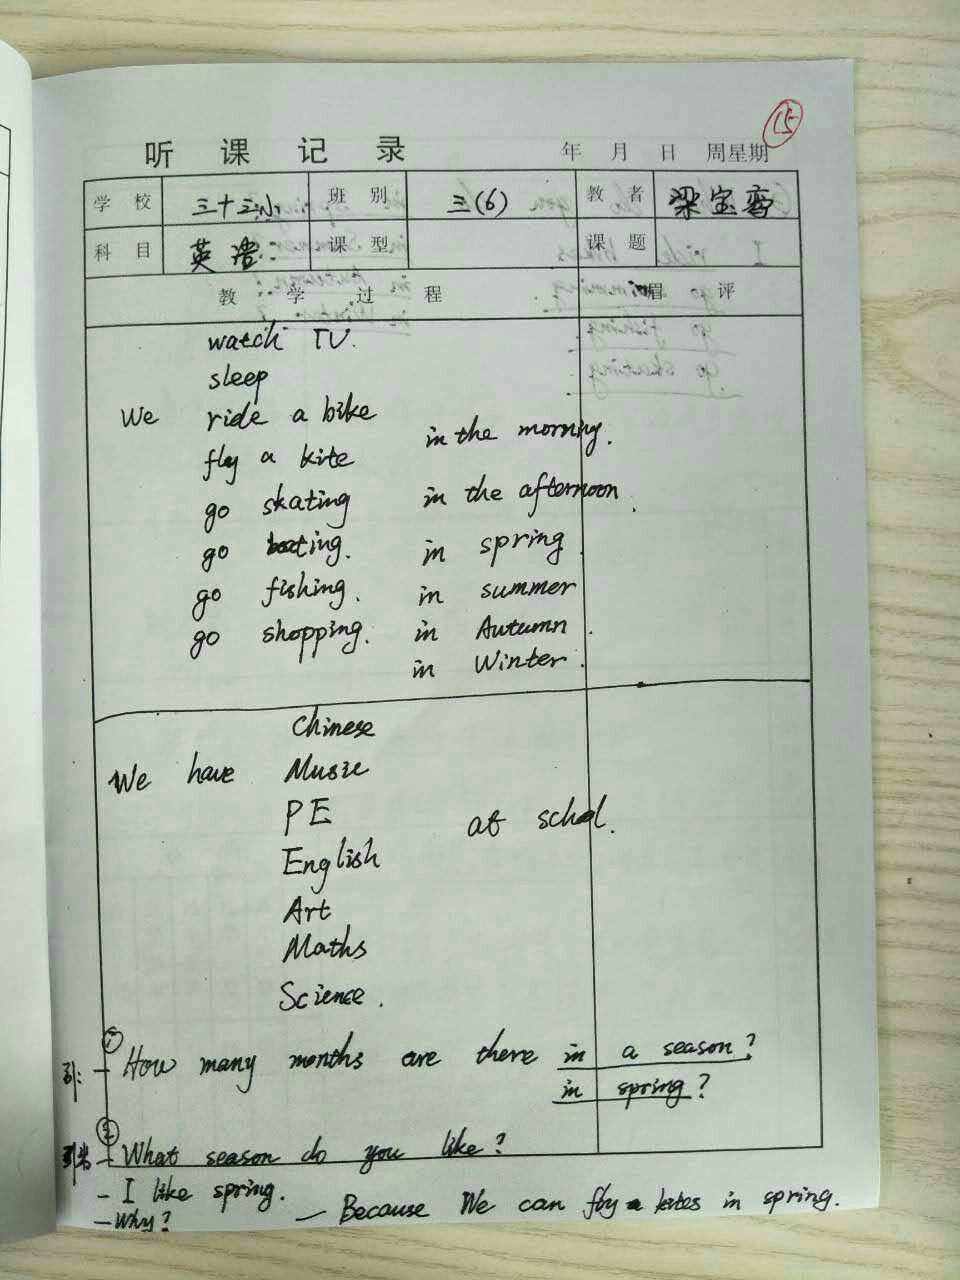 15
听 课 记 录 年 月 日 周星期
学 校 三十三小 班 别 三(6) 教 者 梁宝
科 目 英语 课 型 课 题
教 学 过 程 眉 评
watch TV.
sleep
We ride a bike
in the morning.
fly a kite
go skating in the afternoon.
go boating. in spring.
go fishing. in summer
go shopping. in Autumn.
in Winter.
Chinese
We have Music
PE
at schol.
English
Art
Maths
Science.
① How many months are there in a season?
in spring?
② - What season do you like?
- I like spring.
- Why? - Because We can fly kites in spring.